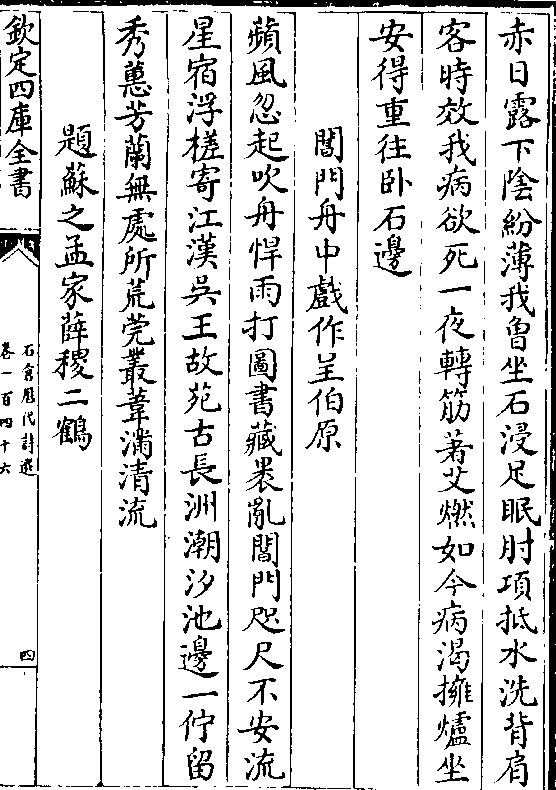 赤日露下陰紛薄我曾坐石浸足眠肘項抵水洗背肩
客時效我病欲死一夜轉筋著艾燃如今病渴擁爐坐
安得重往卧石邊
閶門舟中戲作呈伯原
蘋風忽起吹舟悍雨打圖書藏裹亂閶門咫尺不安流
星宿浮槎寄江漢吳王故苑古長洲潮汐池邊一佇留
秀蕙芳蘭無處所荒莞叢葦滿清流
題蘇之孟家薛稷二鶴
欽定四庫全書
石倉歷代詩選
卷一百四十六
四